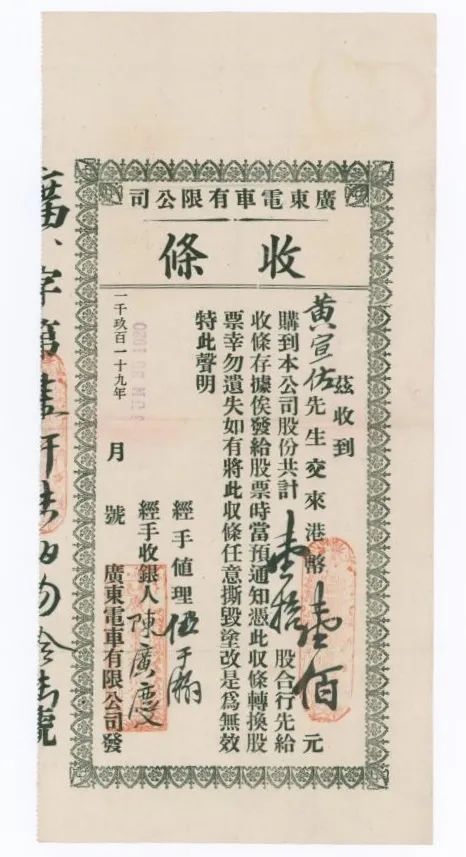 廣東電車有限公司
收條
茲收到
黃宣佐先生交來港幣壹佰元
購到本公司股份共計壹拾股合行先給
收條存據俟發給股票時當預通知憑此收條轉換股
票幸勿遺失如有將此收條任意撕毀塗改是爲無效
特此聲明
經手値理伍于瀚
經手收銀人陳廣慶
一千玖百一十九年 月 號 廣東電車有限公司發
廣字第壹仟